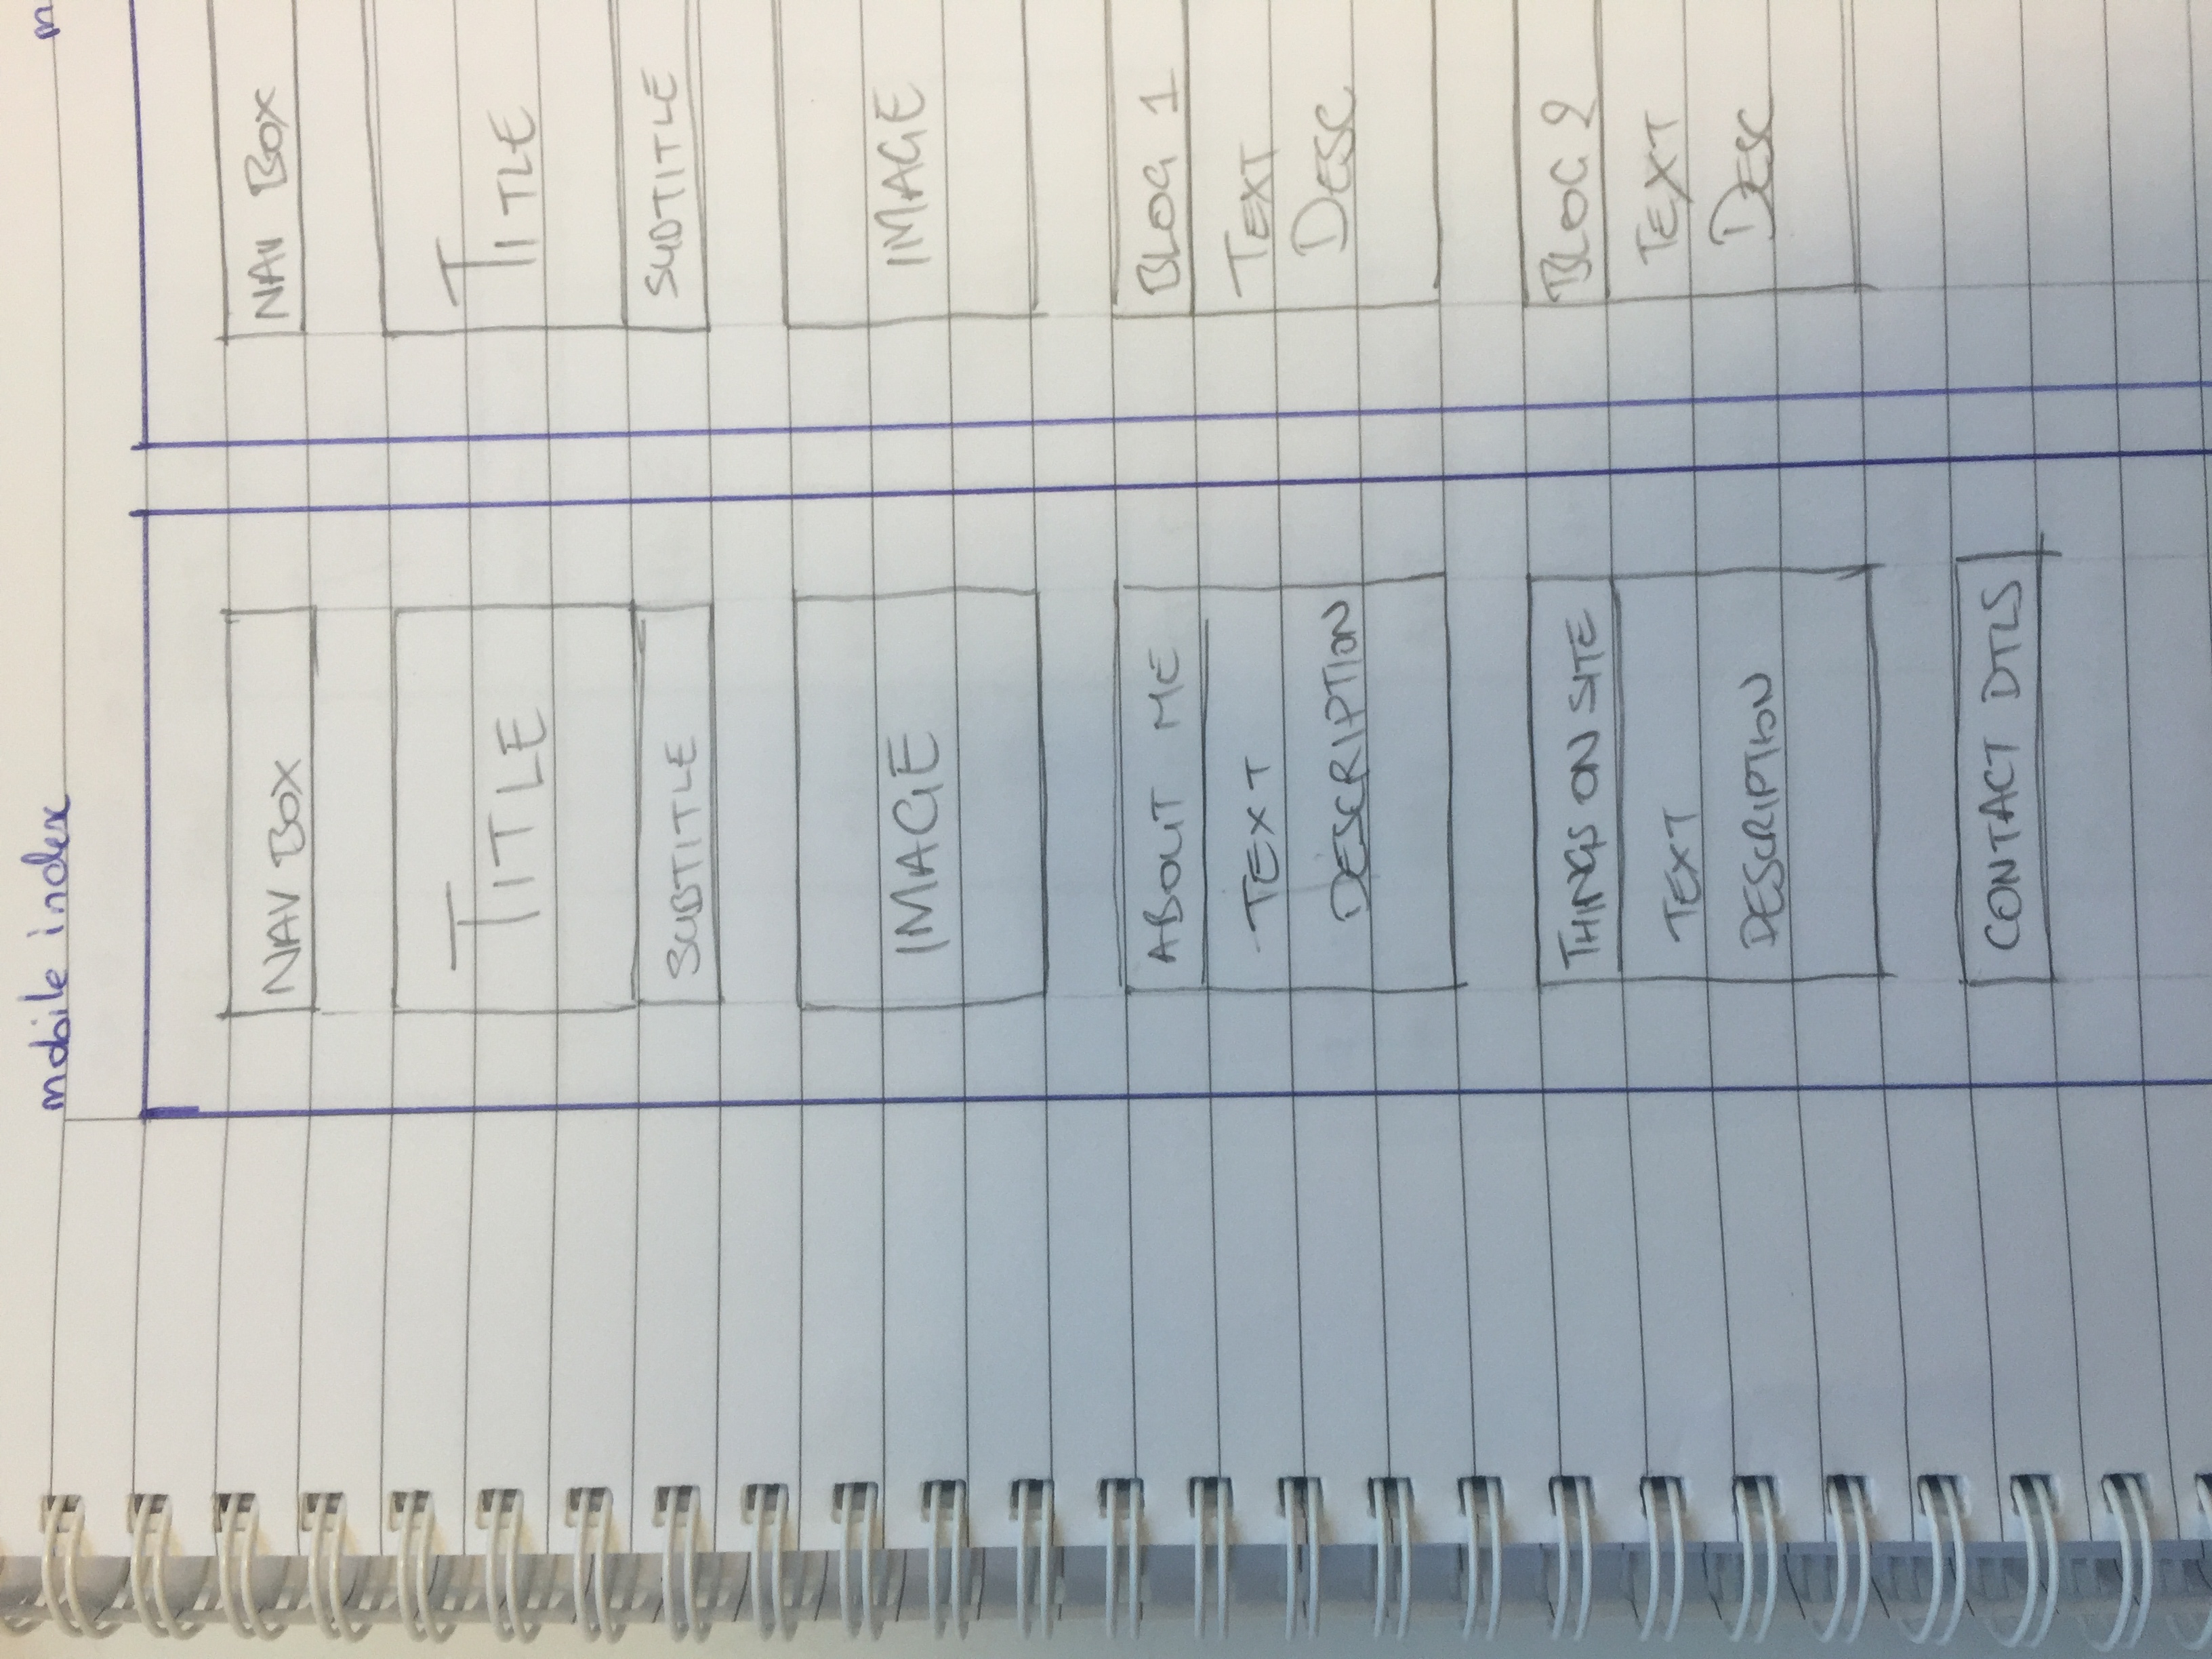 mobile index
NAV BOX
TITLE
SUBTITLE
IMAGE
ABOUT ME
TEXT
DESCRIPTION
THINGS ON SITE
TEXT
DESCRIPTION
CONTACT DTLS
m
NAV BOX
TITLE
SUBTITLE
IMAGE
BLOG 1
TEXT
DESC
BLOG 2
TEXT
DESC